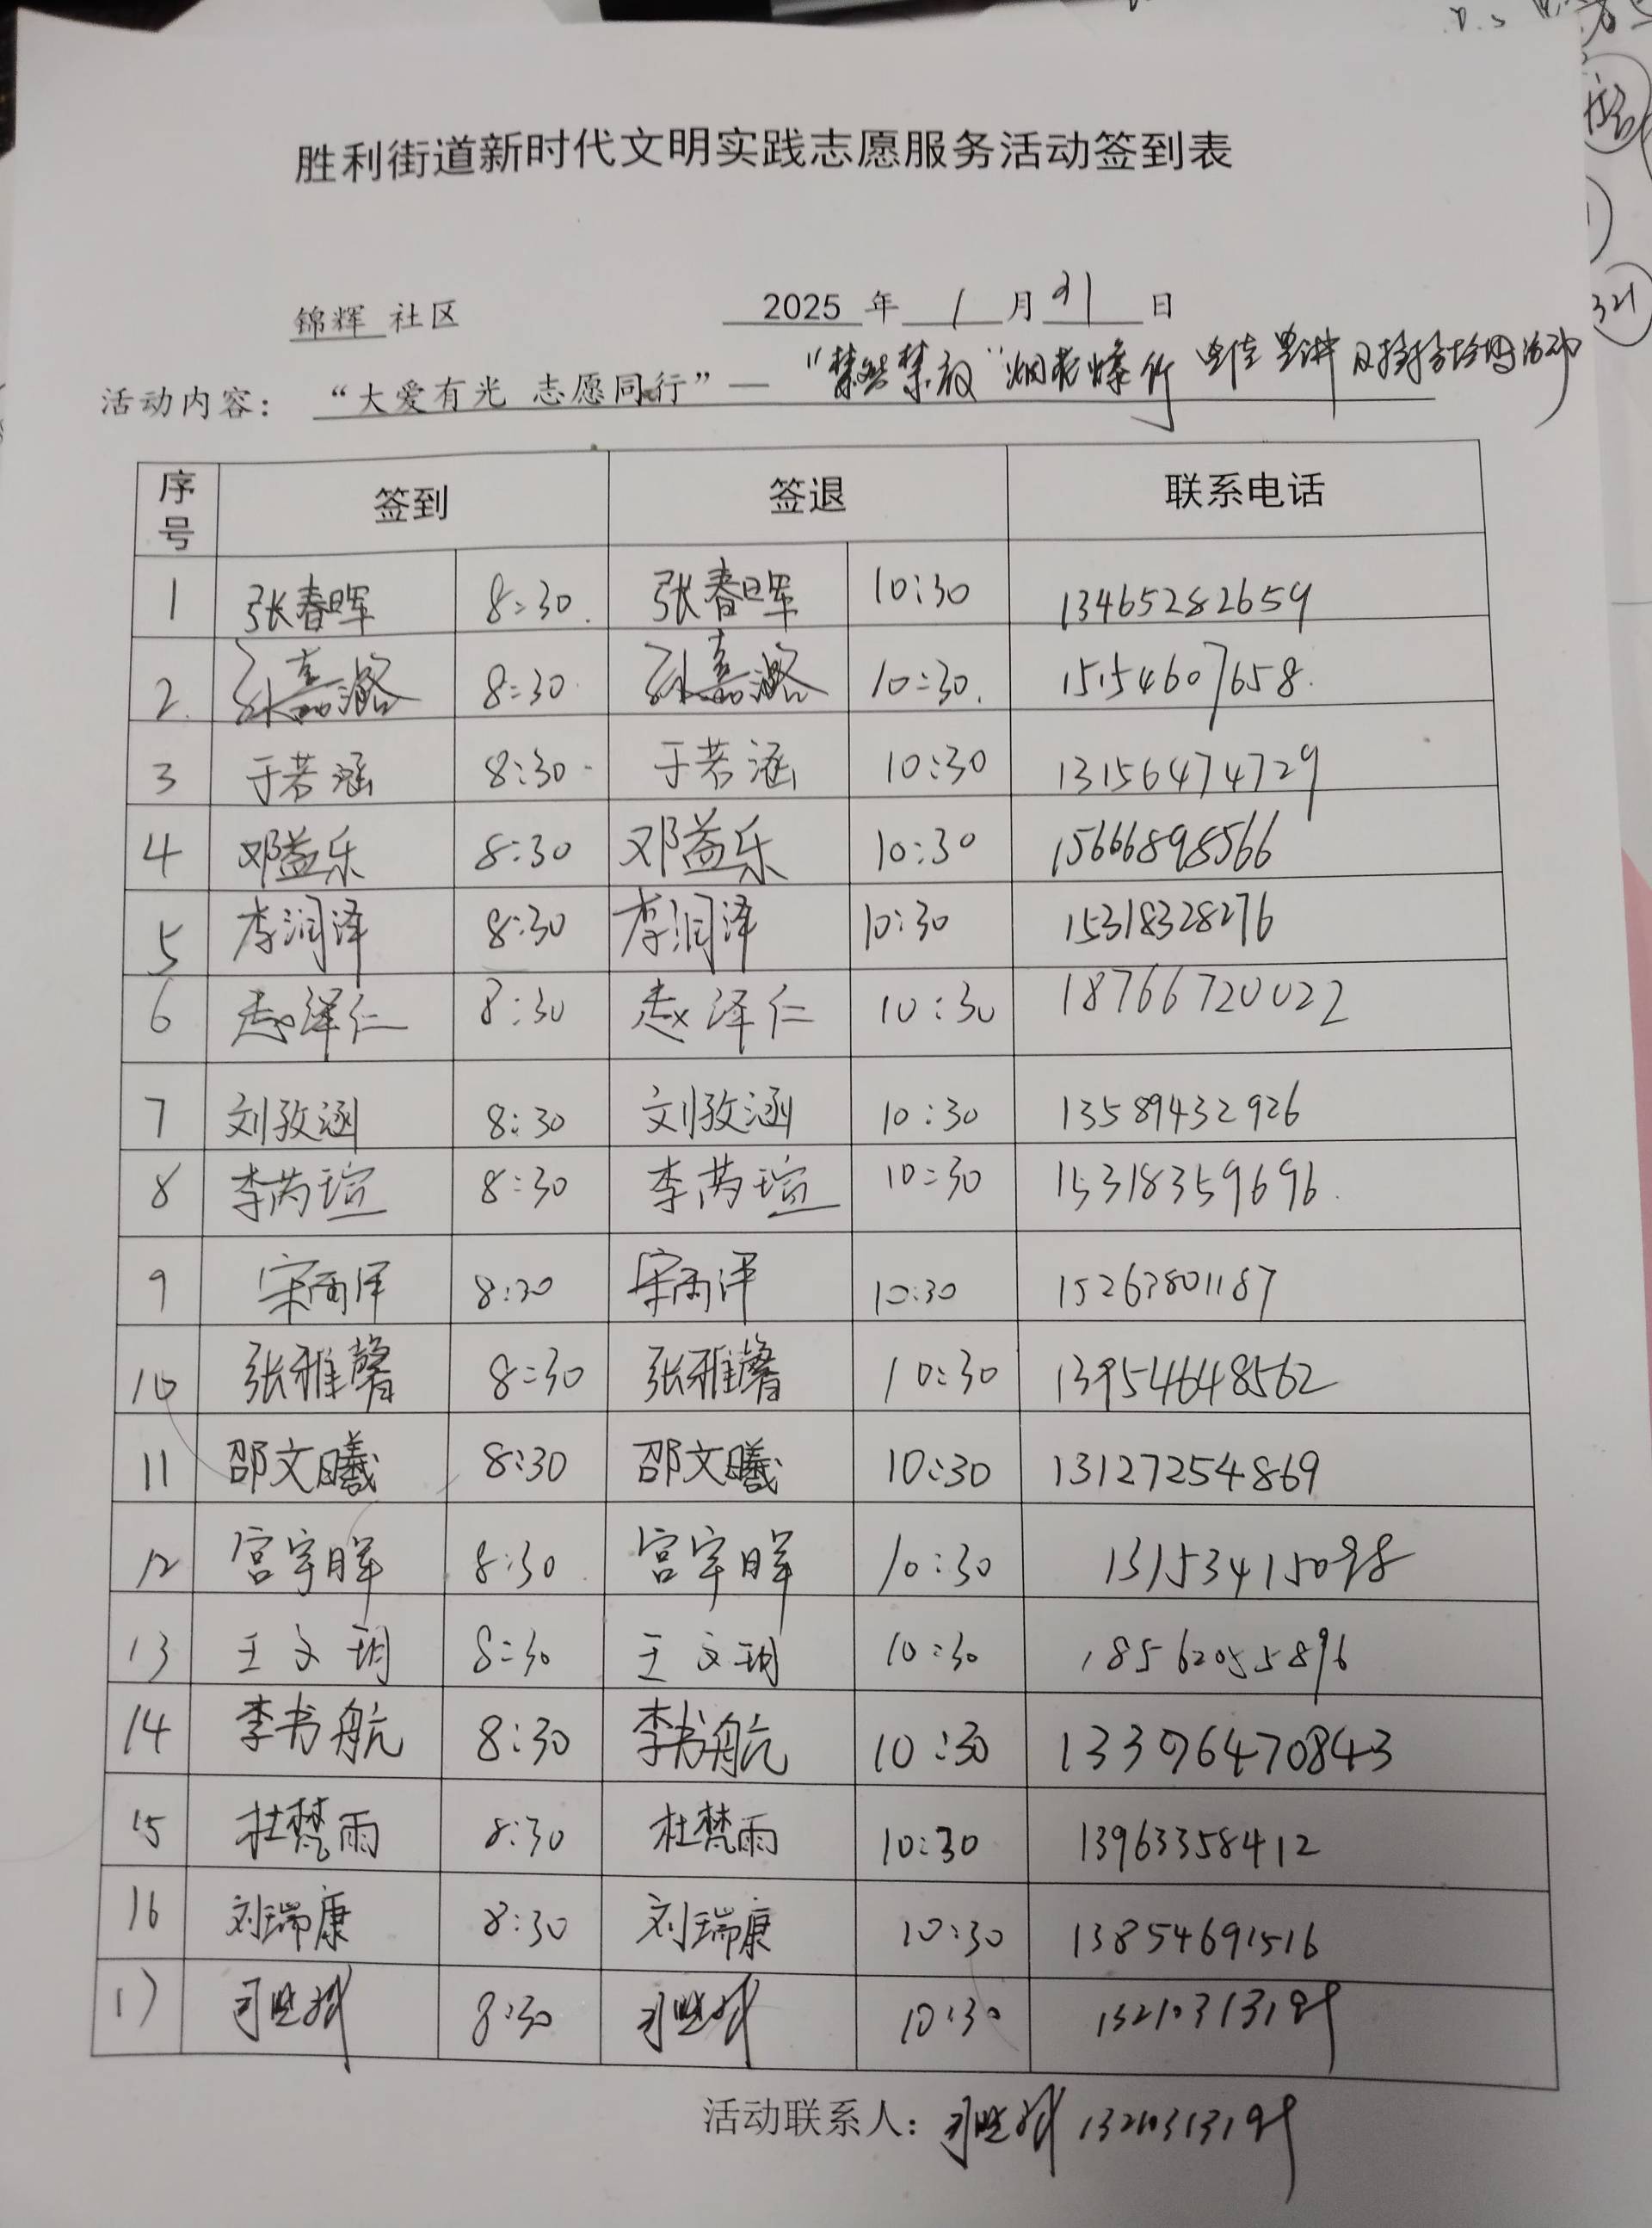 胜利街道新时代文明实践志愿服务活动签到表
锦辉 社区 2025 年 1 月 21 日
活动内容： “大爱有光 志愿同行”— “禁燃禁放”烟花爆竹 宣讲及 活动
序号 签到 签退 联系电话
1 张春晖 8:30 张春晖 10:30 13465282659
2 张嘉潞 8:30 张嘉潞 10:30 15154607658
3 于若涵 8:30 于若涵 10:30 13156474729
4 邓益乐 8:30 邓益乐 10:30 15666898566
5 李润泽 8:30 李润泽 10:30 15318328276
6 赵泽仁 8:30 赵泽仁 10:30 18766720022
7 刘孜涵 8:30 刘孜涵 10:30 13589432926
8 李芮瑄 8:30 李芮瑄 10:30 15318359696
9 宋雨泽 8:30 宋雨泽 10:30 15263801187
10 张雅馨 8:30 张雅馨 10:30 13954648562
11 邵文曦 8:30 邵文曦 10:30 13127254869
12 宫宇晖 8:30 宫宇晖 10:30 13153415098
13 王文玥 8:30 王文玥 10:30 18562055896
14 李书航 8:30 李书航 10:30 13396470843
15 杜梵雨 8:30 杜梵雨 10:30 13963358412
16 刘瑞康 8:30 刘瑞康 10:30 13854691516
17 8:30 10:30
活动联系人：